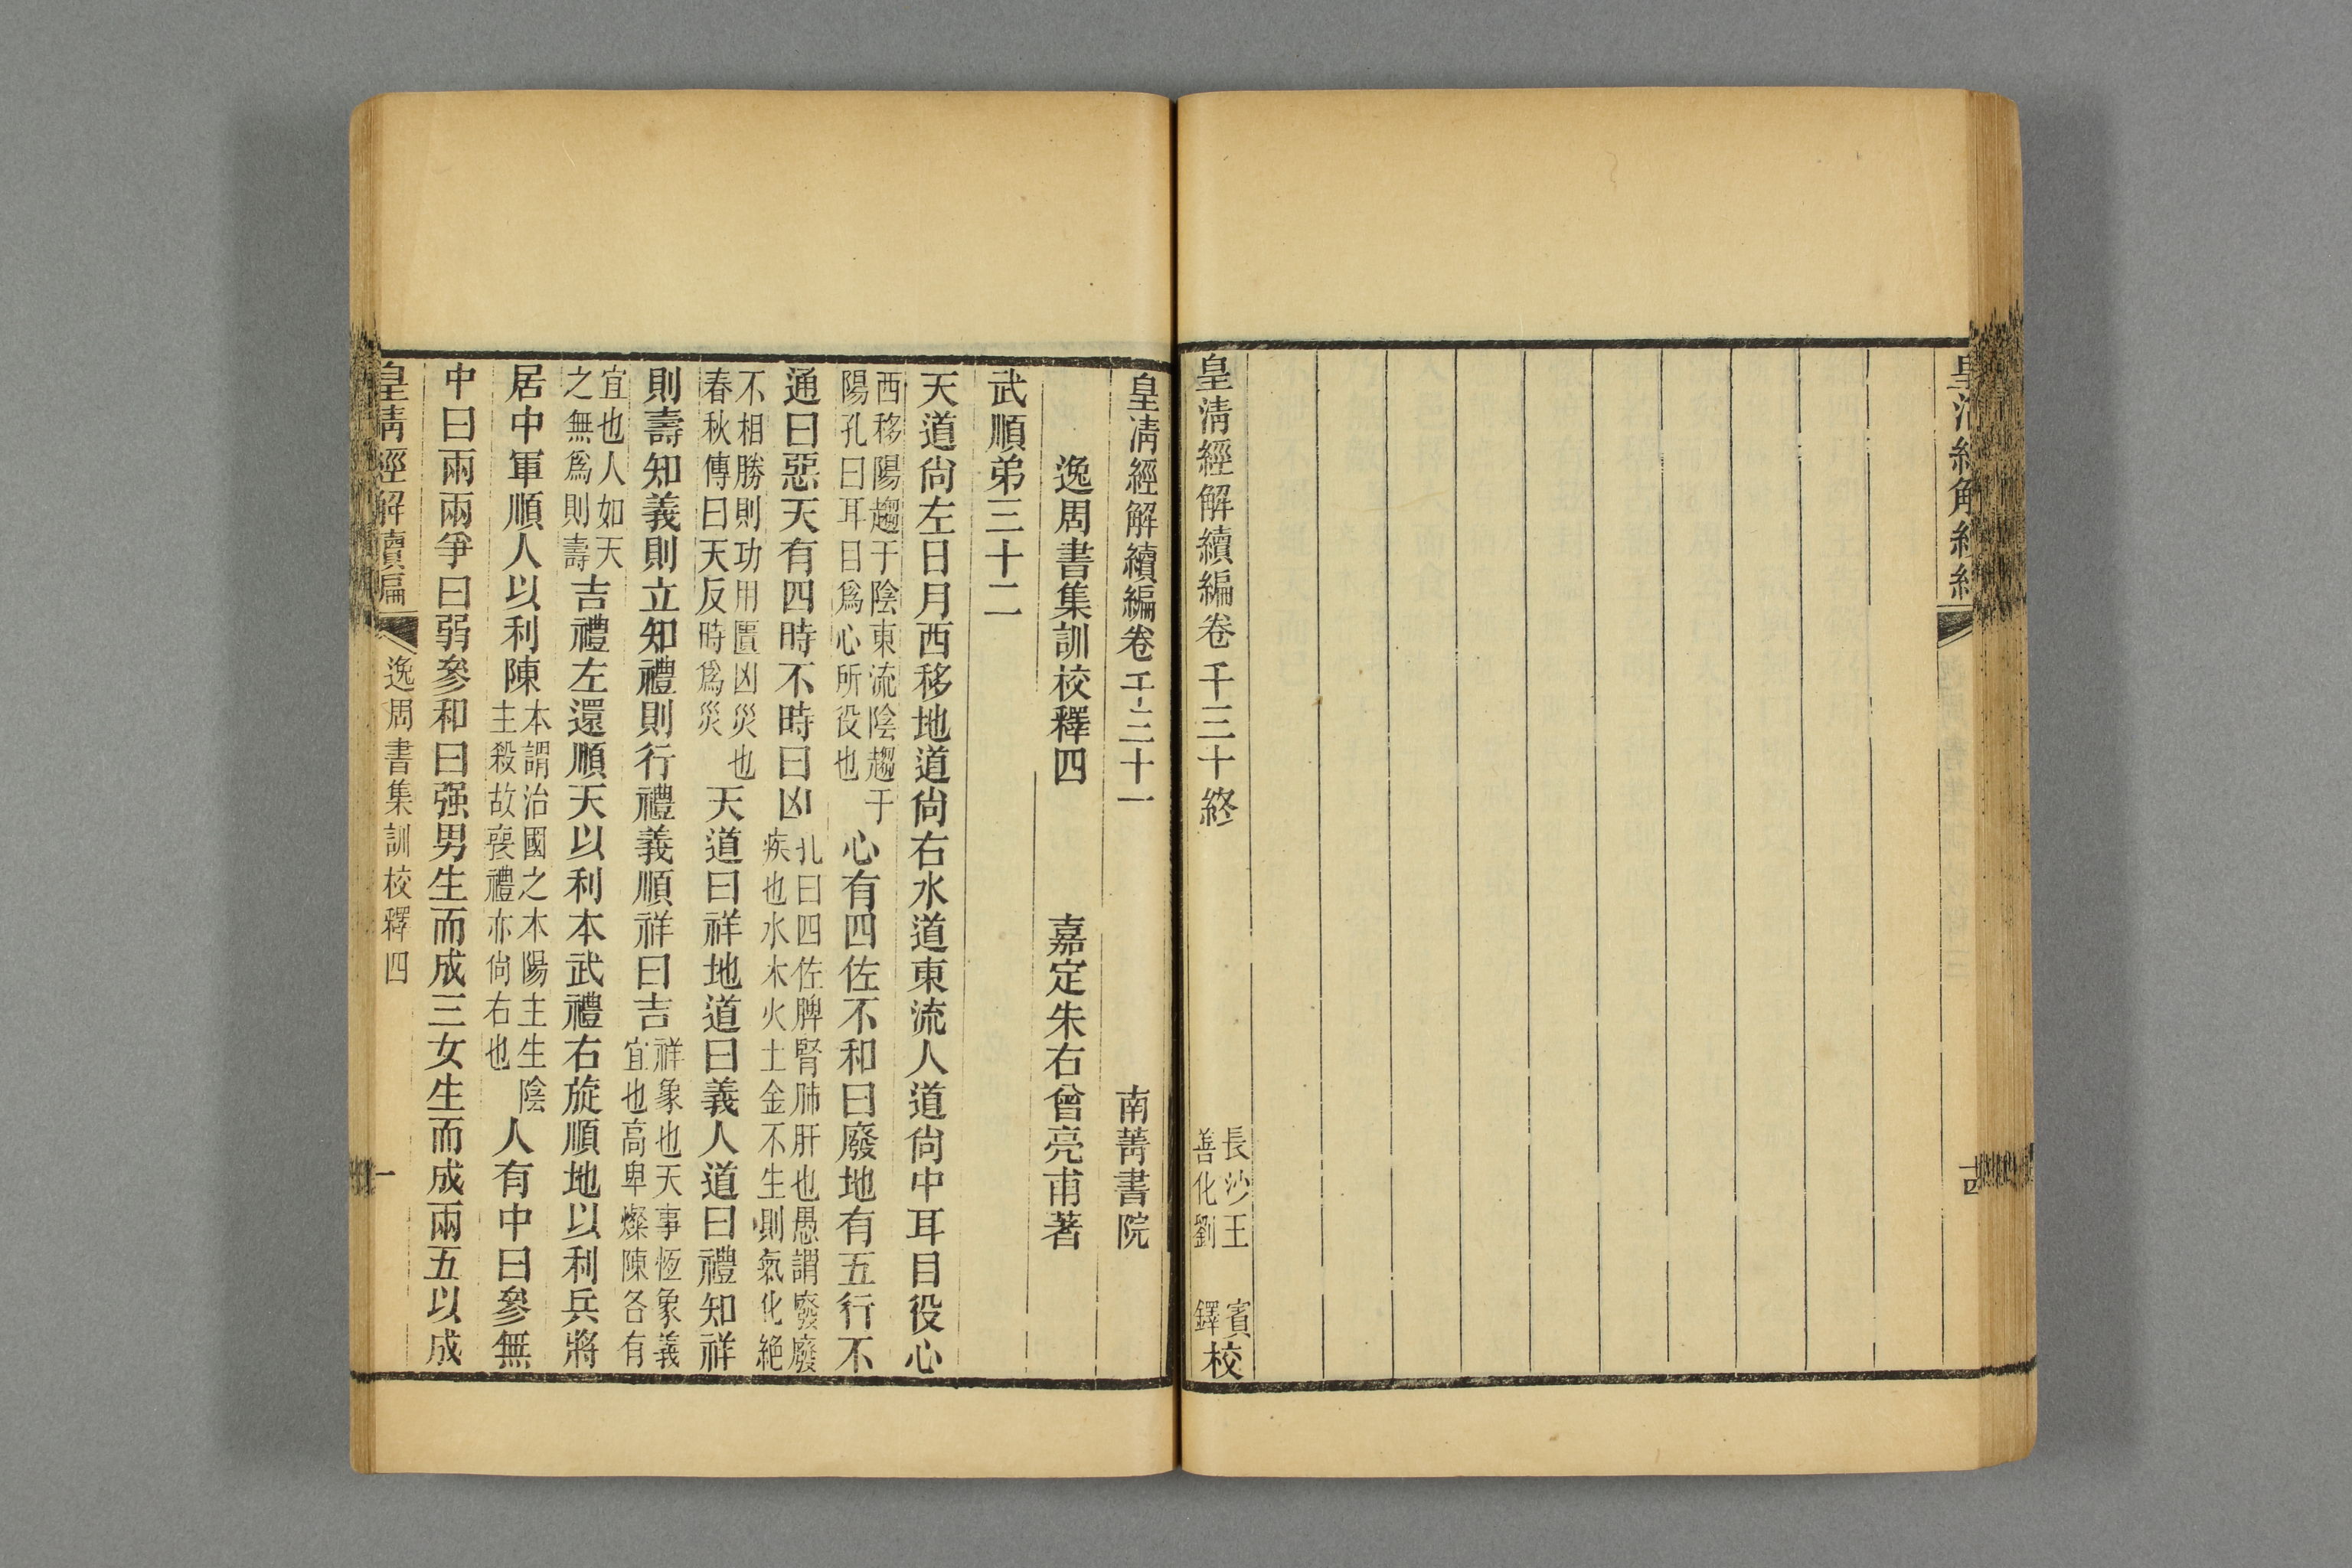 皇清經解續編
十四
皇清經解續編卷千三十終 長沙王 賓 善化劉 鐸 校
皇清經解續編卷千三十一 南菁書院
逸周書集訓校釋四 嘉定朱右曾亮甫著
武順弟三十二
天道尙左日月西移地道尙右水道東流人道尙中耳目役心
西移陽趨于陰東流陰趨于陽孔曰耳目爲心所役也心有四佐不和曰廢地有五行不
通曰惡天有四時不時曰凶孔曰四佐脾腎肺肝也愚謂廢廢疾也水木火土金不生則氣化絶
不相勝則功用匱凶災也春秋傳曰天反時爲災天道曰祥地道曰義人道曰禮知祥
則壽知義則立知禮則行禮義順祥曰吉祥象也天事恆象義宜也高卑燦陳各有
宜也人如天之無爲則壽吉禮左還順天以利本武禮右旋順地以利兵將
居中軍順人以利陳本謂治國之本陽主生陰主殺故喪禮亦尙右也人有中曰參無
中曰兩兩爭曰弱參和曰强男生而成三女生而成兩五以成
皇清經解續編 逸周書集訓校釋四 一